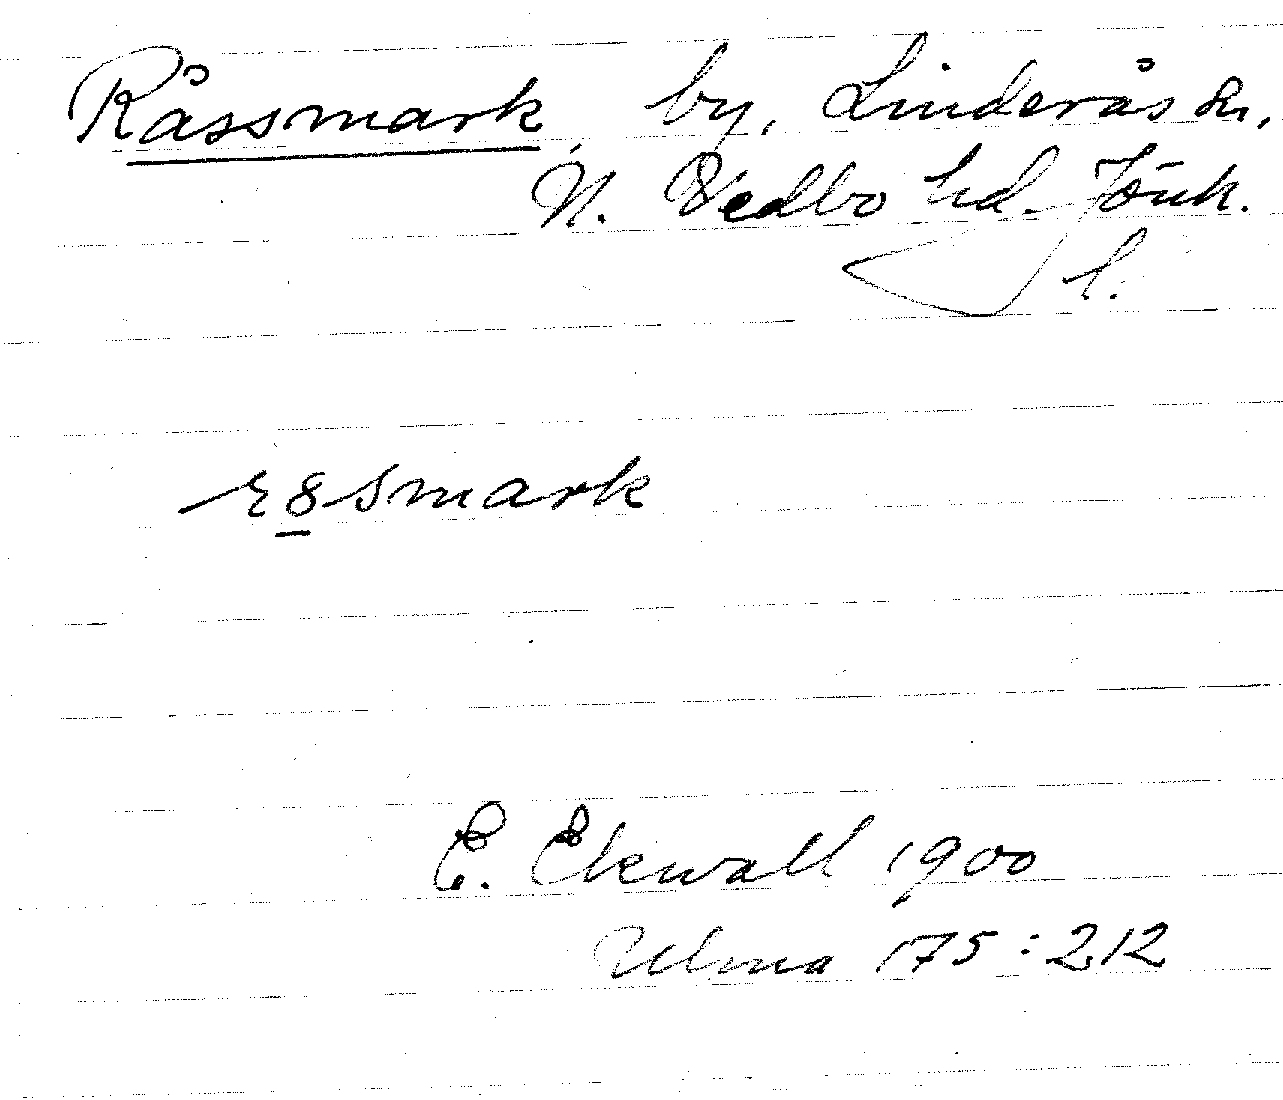 Råssmark, by, Linderås sn,
N. Vedbo hd. Jönk.
l.
r8smark
E. Ekwall 1900
Ulma 175:212